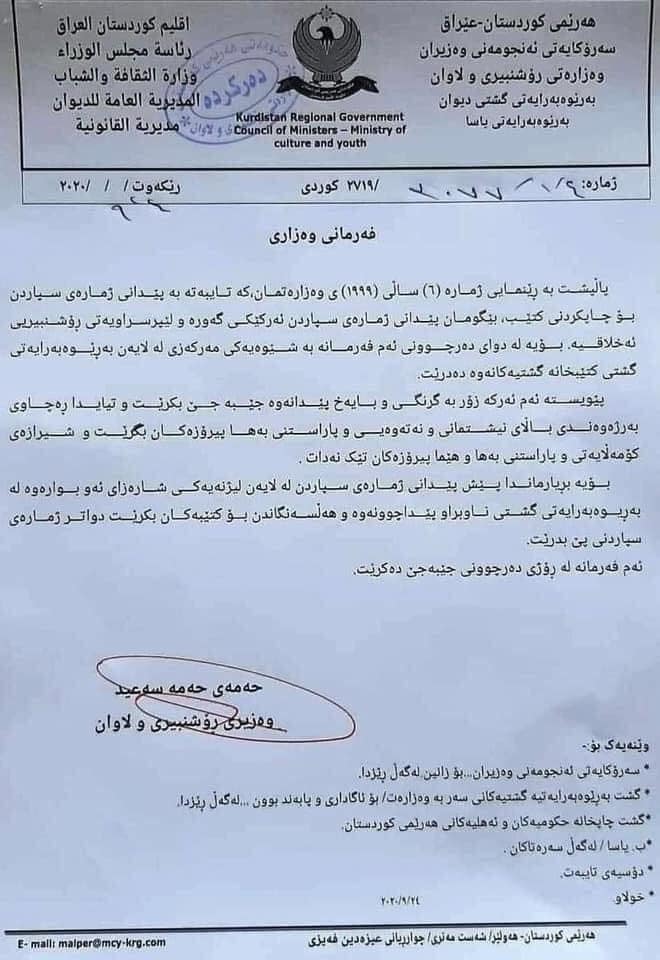 هەرێمی کوردستان-عێراق
سەرۆکایەتی ئەنجومەنی وەزیران
وەزارەتی رۆشنبیری و لاوان
بەرێوەبەرایەتی گشتی دیوان
بەرێوەبەرایەتی یاسا
Kurdistan Regional Government
Council of Ministers – Ministry of
culture and youth
دەرکردە
اقليم كوردستان العراق
رئاسة مجلس الوزراء
وزارة الثقافة والشباب
المديرية العامة للديوان
مديرية القانونية
ژمارە:
/٢٧١٩ کوردی
رێکەوت / / /٢٠٢٠
فەرمانی وەزاری
پاڵپشت بە رێنمایی ژمارە (٦) ساڵی (١٩٩٩) ی وەزارەتمان،کە تایبەتە بە پێدانی ژمارەی سپاردن
بۆ چاپکردنی کتێب، بێگومان پێدانی ژمارەی سپاردن ئەرکێکی گەورە و لێپرسراویەتی رۆشنبیریی
ئەخلاقیە. بۆیە لە دوای دەرچوونی ئەم فەرمانە بە شێوەیەکی مەرکەزی لە لایەن بەڕێوەبەرایەتی
گشتی کتێبخانە گشتیەکانەوە دەدرێت.
پێویستە ئەم ئەرکە زۆر بە گرنگی و بایەخ پێدانەوە جێبە جێ بکرێت و تیایدا ڕەچاوی
بەرژەوەندی باڵای نیشتمانی و نەتەوەیی و پاراستنی بەها پیرۆزەکان بگرێت و شیرازەی
کۆمەڵایەتی و پاراستنی بەها و هێما پیرۆزەکان تێک نەدات .
بۆیە بریارماندا پێش پێدانی ژمارەی سپاردن لە لایەن لیژنەیەکی شارەزای ئەو بوارەوە لە
بەریوەبەرایەتی گشتی ناوبراو پێداچوونەوە و هەڵسەنگاندن بۆ کتێبەکان بکرێت دواتر ژمارەی
سپاردنی پێ بدرێت.
ئەم فەرمانە لە ڕۆژی دەرچوونی جێبەجێ دەکرێت.
حەمەی حەمە سەعید
وەزیری رۆشنبیری و لاوان
وێنەیەک بۆ:-
* سەرۆکایەتی ئەنجومەنی وەزیران...بۆ زانین.لەگەڵ ڕێزدا.
* گشت بەڕێوەبەرایەتیە گشتیەکانی سەر بە وەزارەت/ بۆ ئاگاداری و پابەند بوون ...لەگەڵ ڕێزدا.
*گشت چاپخانە حکومیەکان و ئەهلیەکانی هەرێمی کوردستان.
*ب. یاسا / لەگەڵ سەرەتاکان .
* دۆسیەی تایبەت.
* خولاو.
٢٠٢٠/٩/٢٤
هەرێمی کوردستان- هەولێر/ شەست مەتری/ چوارڕیانی عیزەدین فەیزی
E- mail: malper@mcy-krg.com